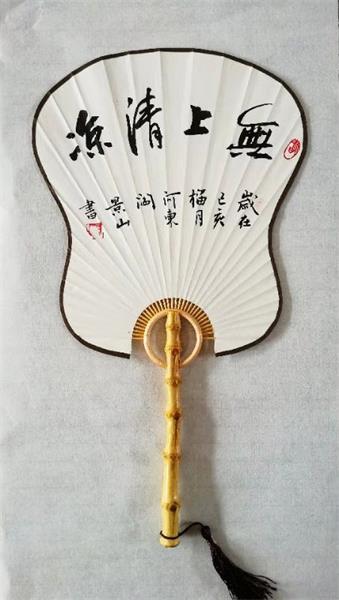 無上清涼
歲在
己亥
榴月
河東
景山
書